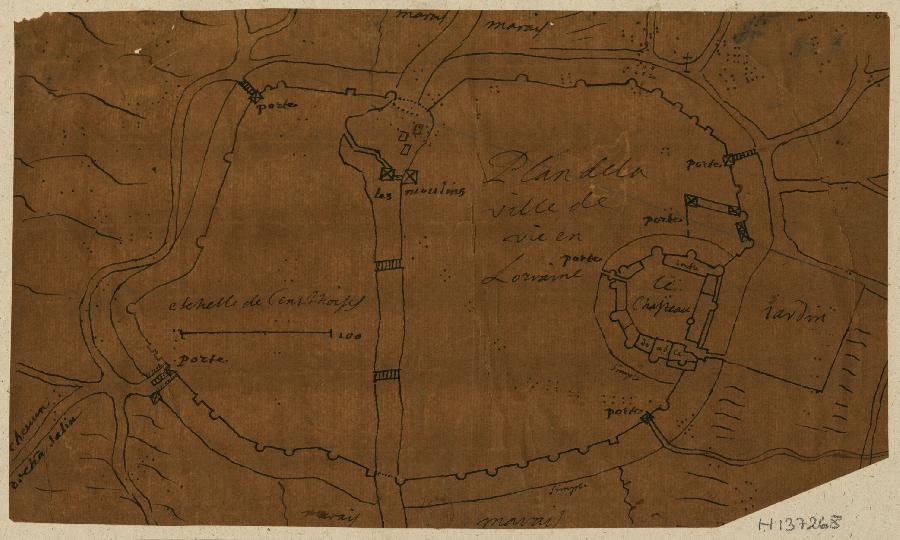 marais
marais
porte
Plan de la
ville de
vic en
Lorraine
les moulins
porte
porte
porte
Le
Chateau
Jardin
echelle de Cent Thoises
100
porte
porte
marais
marais
H137268